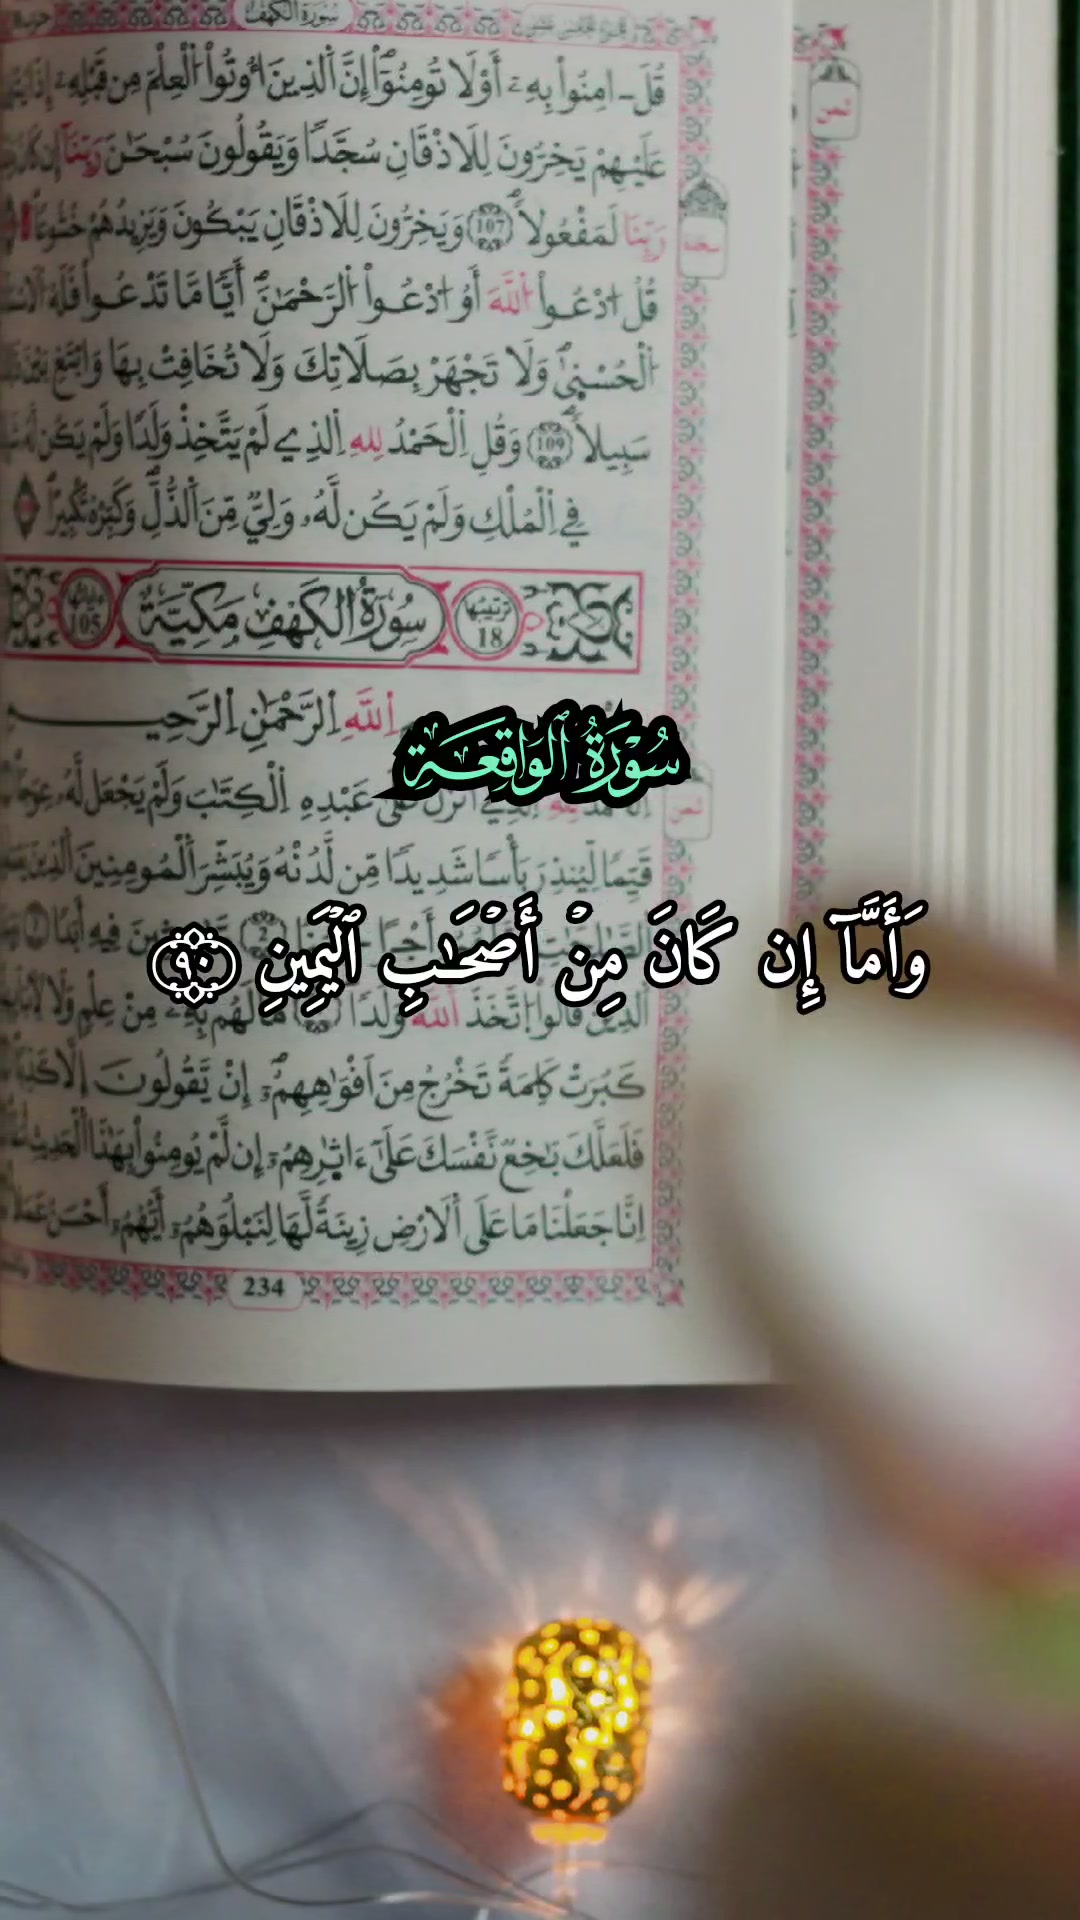 سُورَةُ الكَهْفِ
قُلَ ـ امِنُوا۟ بِهِۦٓ أَوْ لَا تُومِنُوٓا۟ إِنَّ اَ۬لذِينَ أُوتُوا۟ اُ۬لْعِلْمَ مِن قَبْلِهِۦٓ إِذَا
عَلَيْهِمْ يَخِرُّونَ لِلَاذْقَانِ سُجَّدًا وَيَقُولُونَ سُبْحَٰنَ رَبِّنَآ إِن كَانَ
رَبِّنَا لَمَفْعُولًا 107 وَيَخِرُّونَ لِلَاذْقَانِ يَبْكُونَ وَيَزِيدُهُمْ خُشُوعًا
قُلُ ادْعُوا۟ اللَّهَ أَوُ ادْعُوا۟ الرَّحْمَٰنَ أَيًّا مَّا تَدْعُوا۟ فَلَهُ
الْحُسْنىٰ وَلَا تَجْهَرْ بِصَلَاتِكَ وَلَا تُخَافِتْ بِهَا وَابْتَغِ بَيْنَ
سَبِيلًا 109 وَقُلِ اِلْحَمْدُ لِلهِ اِلذِي لَمْ يَتَّخِذْ وَلَدًا وَلَمْ يَكُن لَّهُ
فِي اِلْمُلْكِ وَلَمْ يَكُن لَّهُۥ وَلِيٌّ مِّنَ اَلذُّلِّ وَكَبِّرْهُ تَكْبِيرًا
ترتيبها 18 سُورَةُ الكَهْفِ مَكِّيَّةٌ 105
اِللَّهِ اِلرَّحْمَٰنِ اِلرَّحِي
سُوْرَةُ ٱلوَاقِعَةِ
عَبْدِهِ اِلْكِتَٰبَ وَلَمْ يَجْعَل لَّهُۥ عِوَجًا
قَيِّمًا لِّيُنذِرَ بَأْسًا شَدِيدًا مِّن لَّدُنْهُ وَيُبَشِّرَ اَلْمُومِنِينَ اَلذِينَ
وَأَمَّآ إِن كَانَ مِنْ أَصْحَٰبِ ٱلْيَمِينِ ٩٠
فِيهِ أَبَدًا
اَلذِينَ قَالُوا۟ اُتَّخَذَ اَللَّهُ وَلَدًا مَّا لَهُم بِهِۦ مِنْ عِلْمٍ وَلَا
كَبُرَتْ كَلِمَةً تَخْرُجُ مِنَ اَفْوَٰهِهِمُۥٓ إِنْ يَّقُولُونَ إِلَّا كَذِبًا
فَلَعَلَّكَ بَٰخِعٌ نَّفْسَكَ عَلَىٰٓ ءَاثٰ۪رِهِمُۥٓ إِن لَّمْ يُومِنُوا۟ بِهَٰذَا اَلْحَدِيثِ
اِنَّا جَعَلْنَا مَا عَلَى اَلَارْضِ زِينَةً لَّهَا لِنَبْلُوَهُمُۥٓ أَيُّهُمُۥٓ أَحْسَنُ عَمَلًا
234